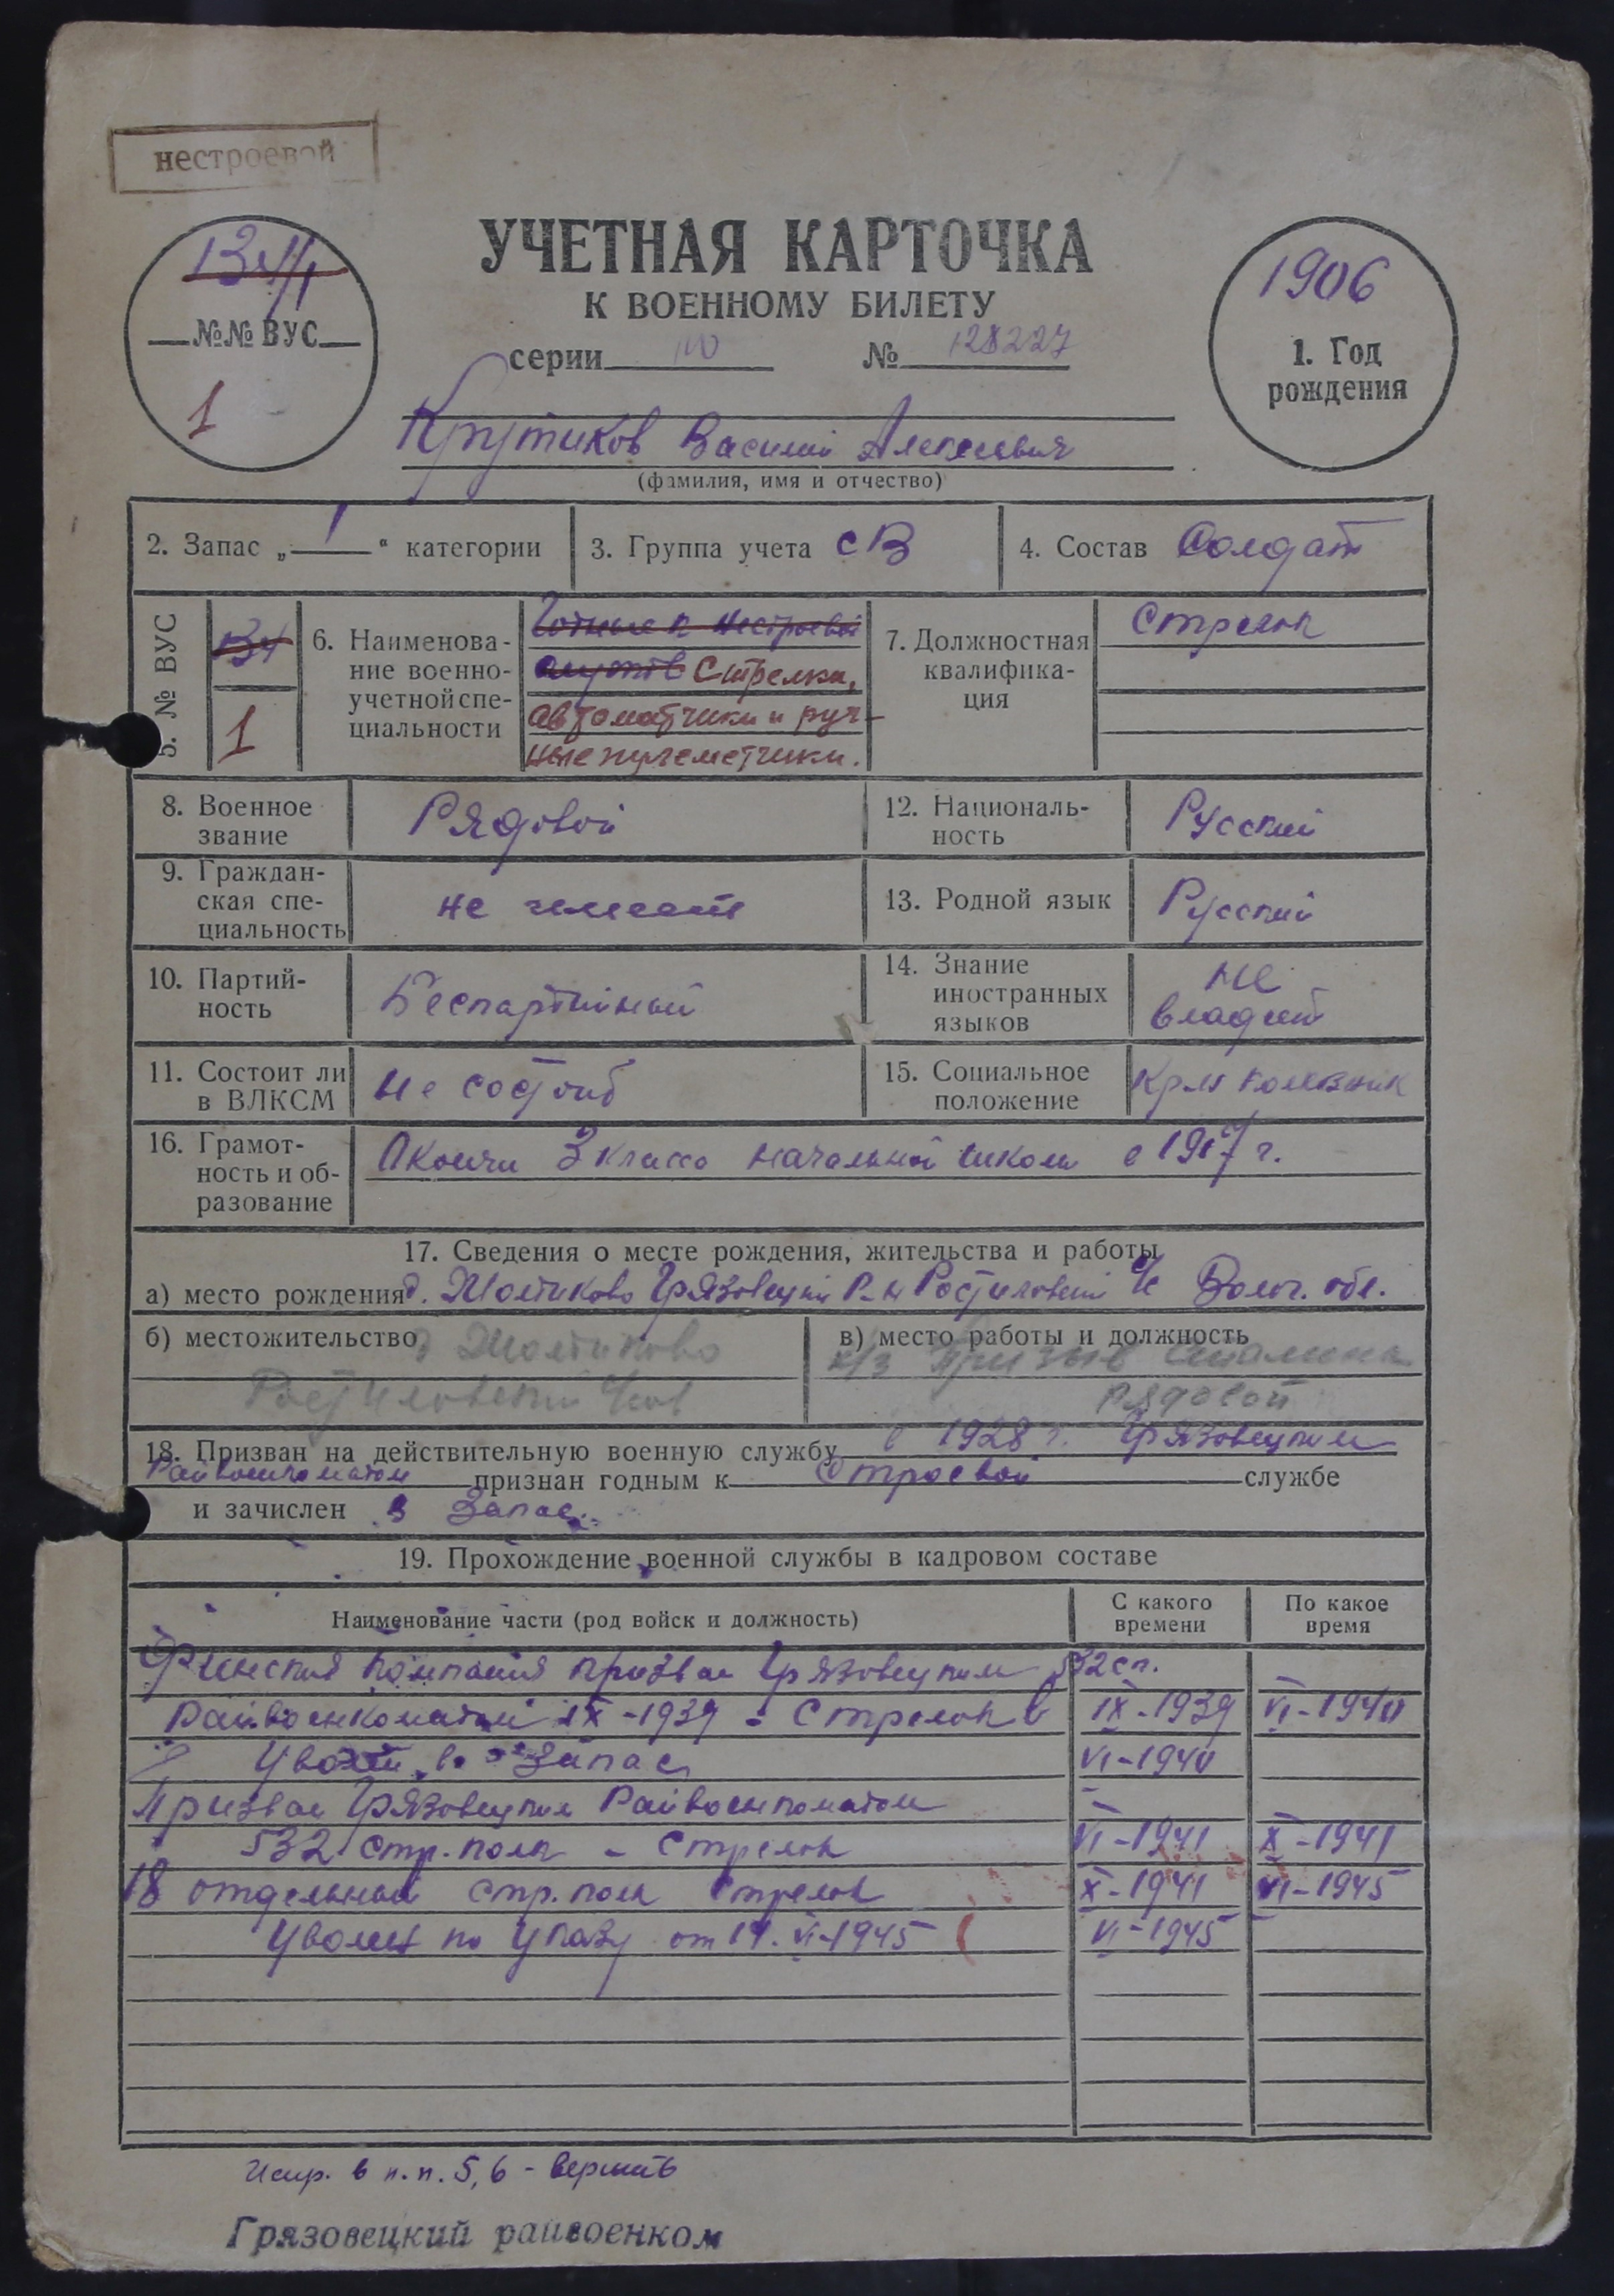 нестроевой
УЧЕТНАЯ КАРТОЧКА
К ВОЕННОМУ БИЛЕТУ
серии № 128227
134/1
№№ ВУС
1
1906
1. Год
рождения
Крутиков Василий Алексеевич
(фамилия, имя и отчество)
2. Запас „ 1 “ категории
3. Группа учета СВ
4. Состав Солдат
5. № ВУС
134
1
6. Наименова-
ние военно-
учетной спе-
циальности
Годные к нестроевой
Стрелки,
автоматчики и руч-
ные пулеметчики.
7. Должностная
квалифика-
ция
Стрелок
8. Военное
звание
Рядовой
12. Националь-
ность
Русский
9. Граждан-
ская спе-
циальность
не имеет
13. Родной язык
Русский
10. Партий-
ность
Беспартийный
14. Знание
иностранных
языков
не
владеет
11. Состоит ли
в ВЛКСМ
Не состоит
15. Социальное
положение
16. Грамот-
ность и об-
разование
Окончил 3 класса начальной школы в 1917 г.
17. Сведения о месте рождения, жительства и работы
а) место рождения д. Грязовецкий Р-н Ростиловский с/с Волог. обл.
б) местожительство д
Ростиловский с/сов
в) место работы и должность
к/з Призыв Сталина
рядовой
18. Призван на действительную военную службу в 1928 г. Грязовецким
Райвоенкоматом признан годным к строевой службе
и зачислен в Запас
19. Прохождение военной службы в кадровом составе
Наименование части (род войск и должность)
С какого
времени
По какое
время
Финская Компания призван Грязовецким 532 сп.
Райвоенкоматом IX-1939 - Стрелок в IX-1939 VI-1940
Уволен в запас VI-1940
Призван Грязовецким Райвоенкоматом
532 стр. полк - Стрелок VI-1941 X-1941
18 отдельный стр. полк Стрелок X-1941 VI-1945
Уволен по Указу от VI-1945 VI-1945
Испр. в п.п. 5, 6 - верить
Грязовецкий райвоенком